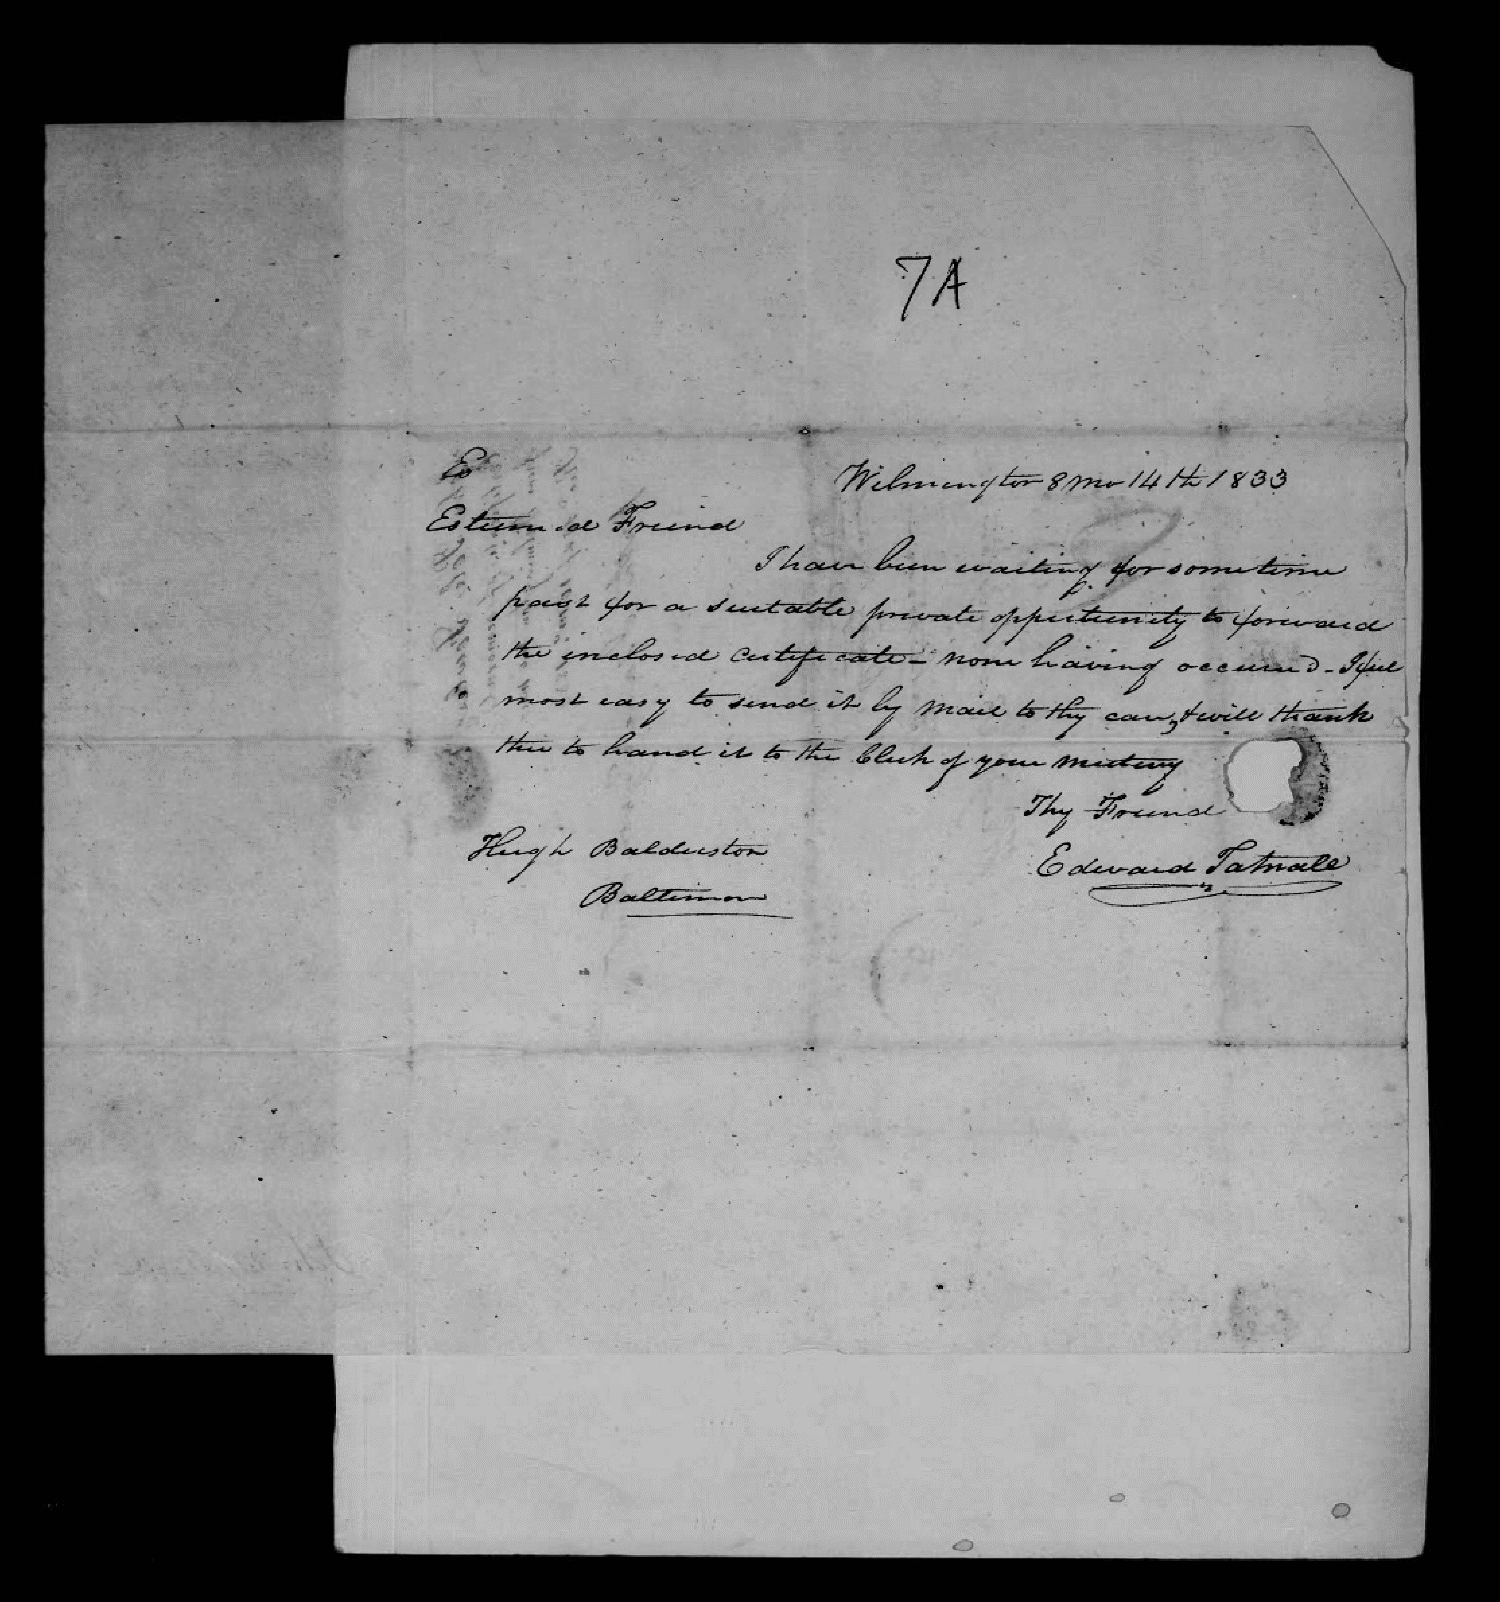 7A
Es
Wilmington 8 mo 14th 1833
Esteemed Friend
I have been waiting for sometime
past for a suitable private oppertunity to forward
the inclosed certificate - none having occurred - I feel
most easy to send it by mail to thy care, & will thank
thee to hand it to the Clerk of your meeting
Thy Friend
Hugh Balderston
Edward Tatnall
Baltimore